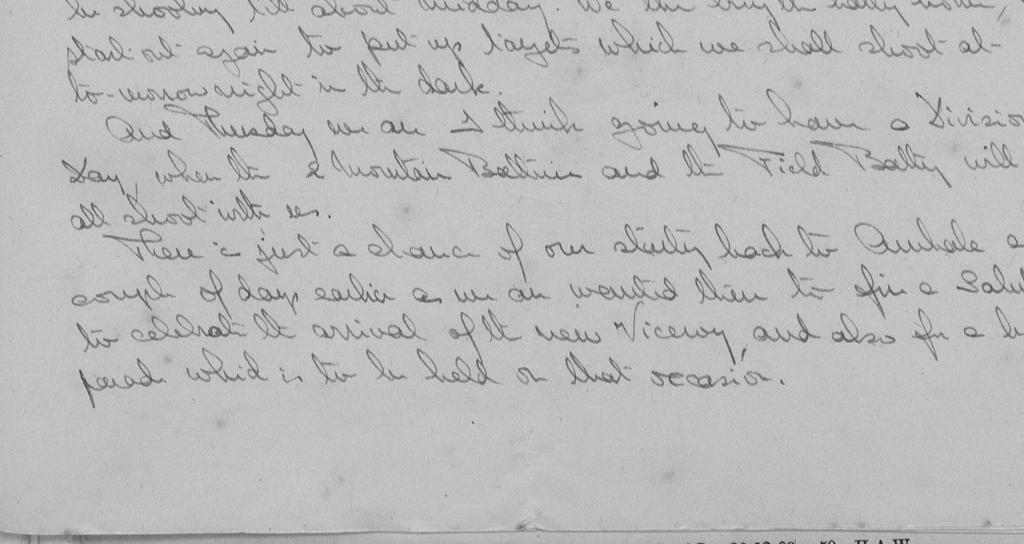 be shooting till about midday. We then
start out again to put up targets which we shall shoot at
to-morrow night in the dark.
And Tuesday we are I think going to have a Division
Day, when the 2 Mountain Batteries and the Field Battery will
all shoot with us.
There is just a chance of our starting back to Ambala a
couple of days earlier as we are wanted there to fire a Salu
to celebrate the arrival of the new Viceroy, and also for a
parade which is to be held on that occasion.
H.A.W.